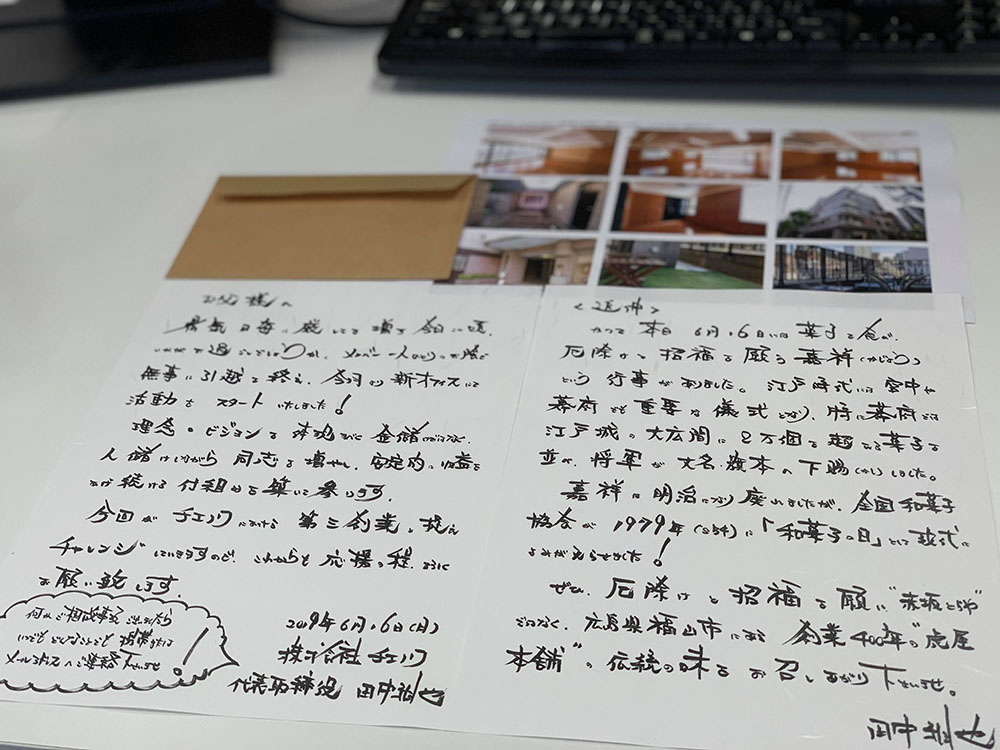 お父様へ
暑気日毎に 増す 今日この頃、
いかがお過ごしでしょうか。メンバー一人ひとりの
無事に引越を終え、今月から新オフィスにて
活動をスタートいたしました!
理念・ビジョンを体現 金儲
人儲けしながら同志を増やし、安定的に収益を
続ける仕組みを築いて参ります。
今回がチェンジにおける第三創業と捉え
チャレンジしていきますので、これからも応援の程、
お願い致します。
2019年6月16日(日)
株式会社
代表取締役 田中
何かご相談事などございましたら
いつでもどんなことでも携帯または
メールアドレスへご連絡下さいませ!
<追伸>
かつて本日6月16日には菓子を食べ、
厄除けと招福を願う嘉祥(かじょう)
という行事がありました。江戸時代には宮中や
幕府でも重要な儀式となり、特に幕府では
江戸城の大広間に2万個を超える菓子を
並べ、将軍が大名・旗本へ下賜(かし)しました。
嘉祥は明治になり廃れましたが、全国和菓子
協会が1979年(S54)に「和菓子の日」として
よみがえらせました!
ぜひ、厄除けと招福を願い"赤坂とらや"
ではなく、広島県福山市にある創業400年"虎屋
本舗"の伝統の味をお召しあがり下さいませ。
田中